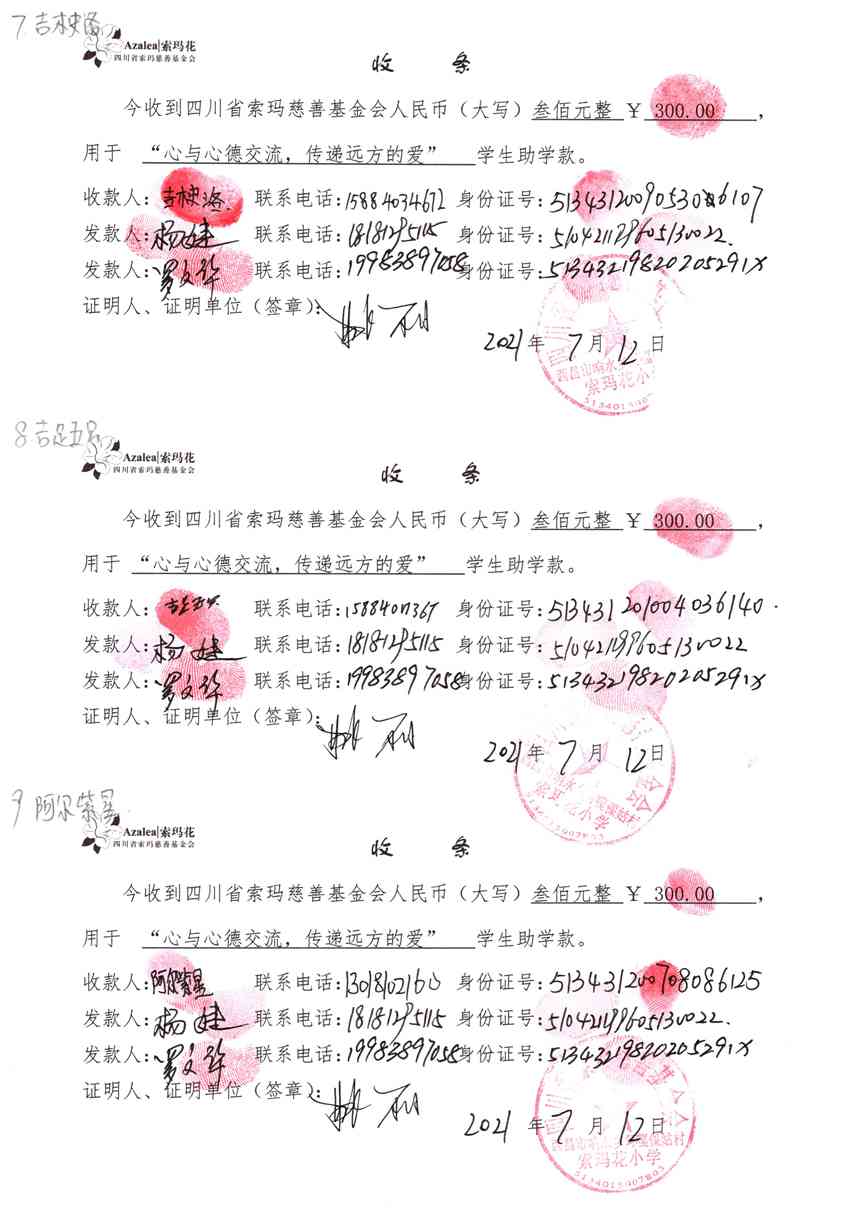 Azalea|索玛花
四川省索玛慈善基金会
收 条
今收到四川省索玛慈善基金会人民币（大写）叁佰元整 ￥ 300.00 ，
用于 “心与心德交流，传递远方的爱” 学生助学款。
收款人： 联系电话：15884034672 身份证号：
发款人：杨婕 联系电话：18181295115 身份证号：
发款人：罗文华 联系电话：19983897058 身份证号：51343219820205291X
证明人、证明单位（签章）：
2021年 7 月 12 日
索玛花小
8吉足五呷
Azalea|索玛花
四川省索玛慈善基金会
收 条
今收到四川省索玛慈善基金会人民币（大写）叁佰元整 ￥ 300.00 ，
用于 “心与心德交流，传递远方的爱” 学生助学款。
收款人： 联系电话： 身份证号：513431201004036140
发款人：杨婕 联系电话：18181295115 身份证号：
发款人：罗文华 联系电话：19983897058 身份证号：51343219820205291X
证明人、证明单位（签章）：
2021年 7 月 12日
9 阿尔紫星
Azalea|索玛花
四川省索玛慈善基金会
收 条
今收到四川省索玛慈善基金会人民币（大写）叁佰元整 ￥ 300.00 ，
用于 “心与心德交流，传递远方的爱” 学生助学款。
收款人：阿尔紫星 联系电话： 身份证号：513431200708086125
发款人：杨婕 联系电话：18181295115 身份证号：
发款人：罗文华 联系电话：19983897058 身份证号：51343219820205291X
证明人、证明单位（签章）：
2021 年 7 月 12日
索玛花小学